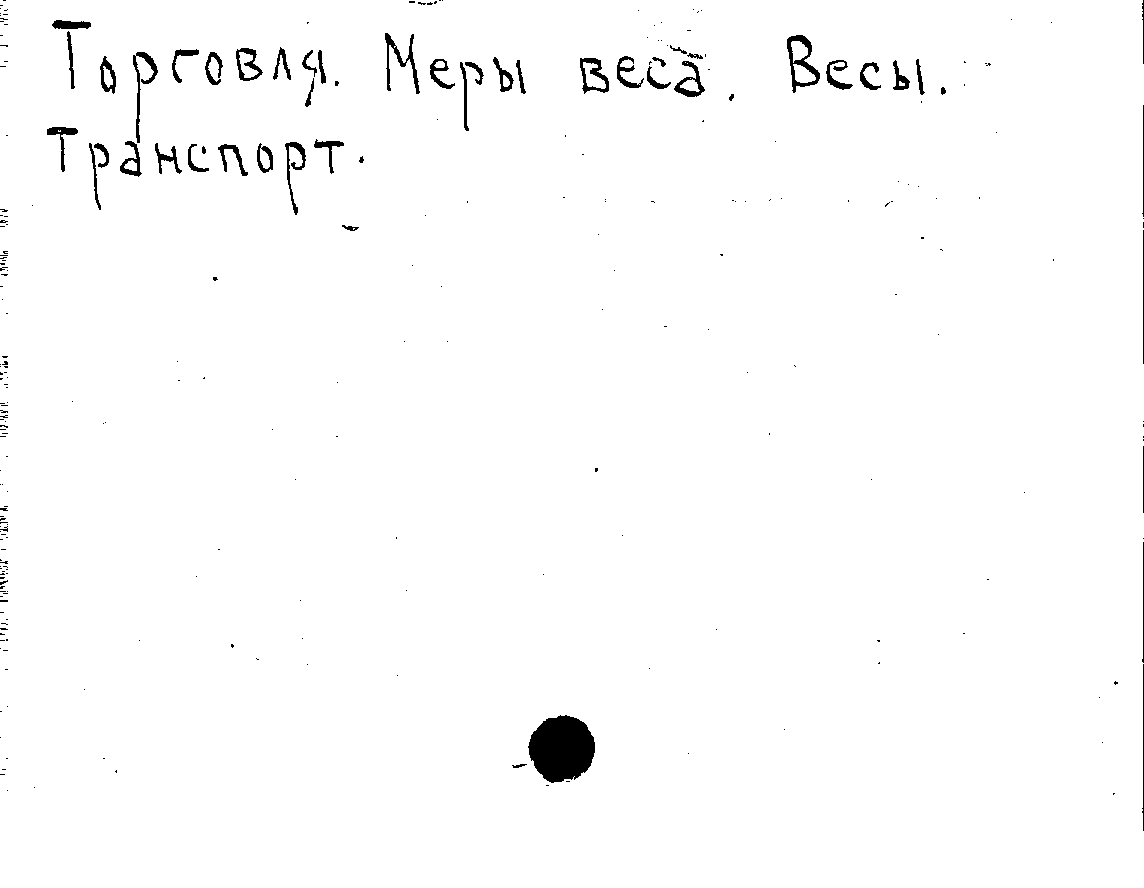 Торговля. Меры веса. Весы.
Транспорт.